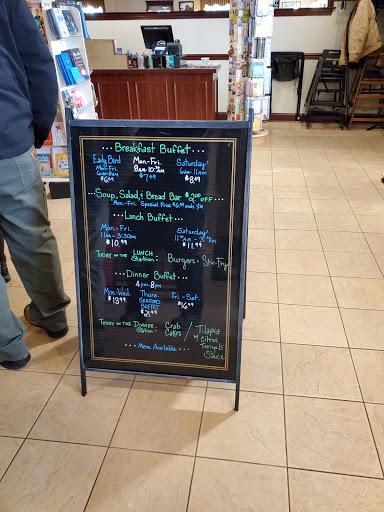 Breakfast Buffet
Early Bird Mon-Fri. Saturday
Mon-Fri 8am-10:30am 6am-11am
6am-8am $7.49 $8.49
Soup, Salad, & Bread Bar $2.00 OFF
Mon-Fri. Special Price
Lunch Buffet
Mon-Fri Saturday
11am-3:30
$10.99 $11.99
Today on the LUNCH Station: Burgers Stir-Fry
Dinner Buffet
4pm-8pm
Mon-Wed. Thurs. Fri-Sat.
SEAFOOD
BUFFET
Today on the Dinner Station: Crab Cakes / Tilapia
w/ Citrus
Teriyaki
Sauce
Menu Available